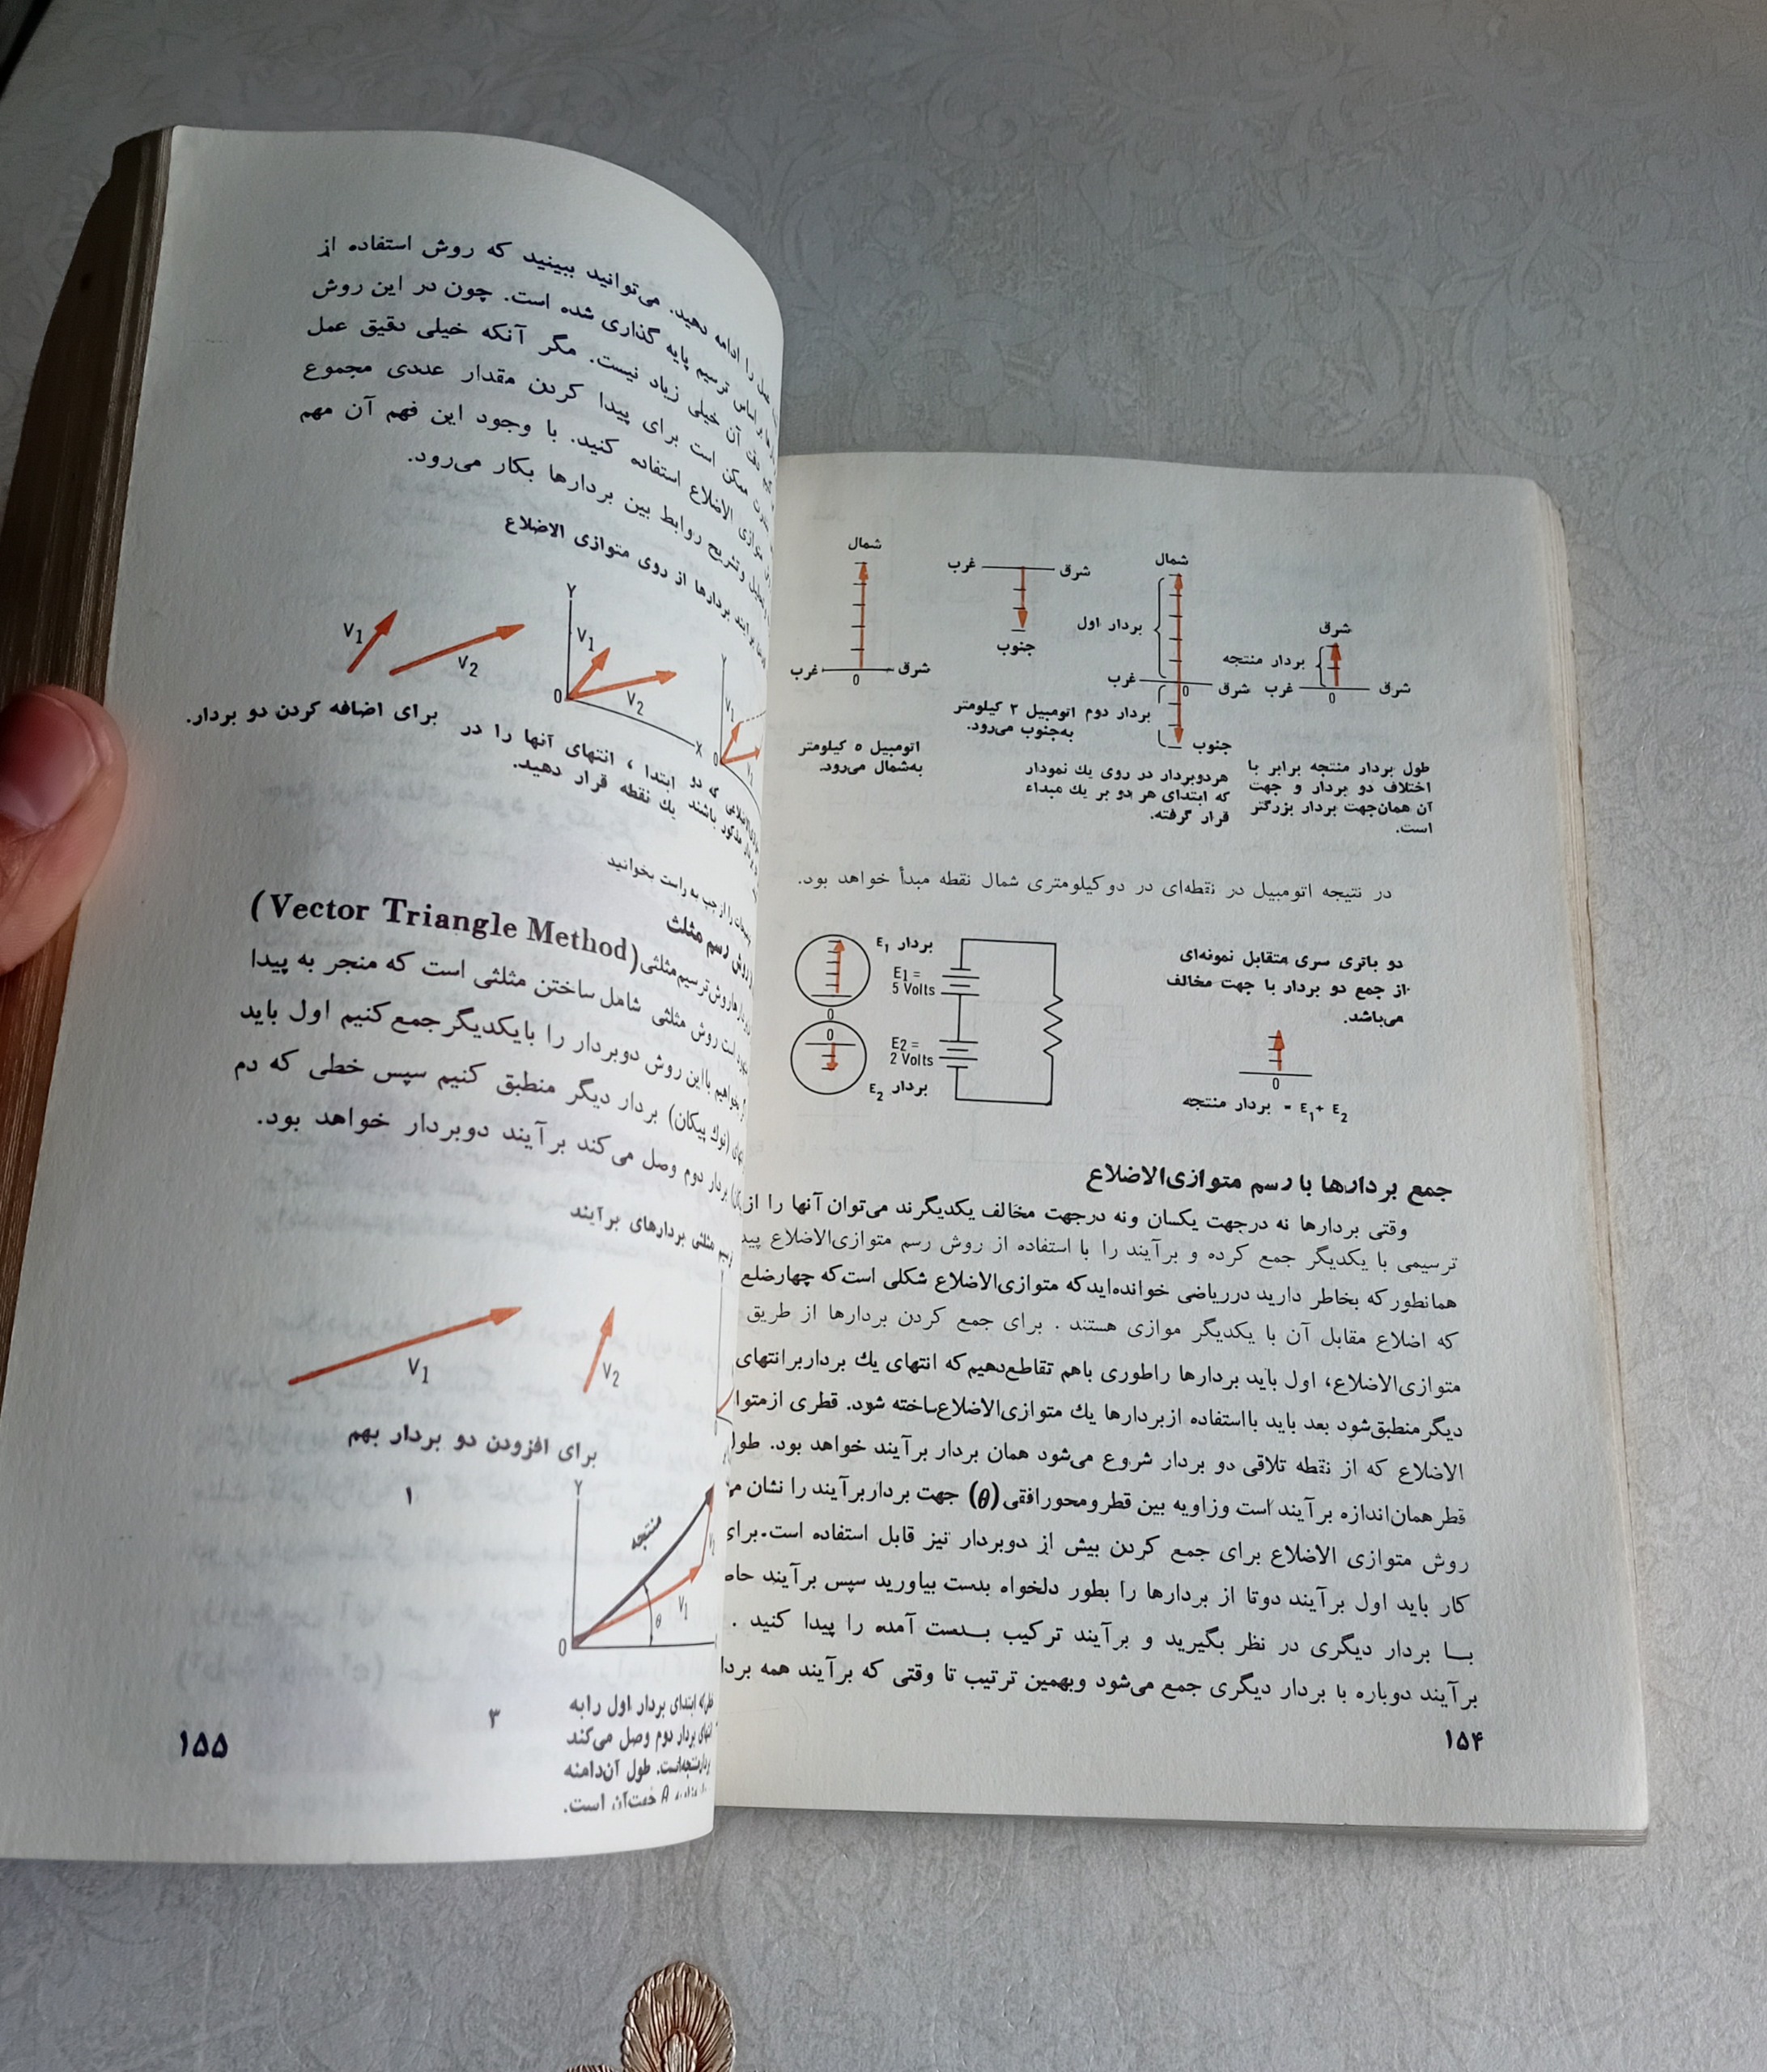 شمال
غرب
شرق
0
اتومبیل ۵ کیلومتر
به‌شمال می‌رود.
غرب
شرق
جنوب
اتومبیل ۳ کیلومتر
به‌جنوب می‌رود.
شمال
بردار اول
غرب
شرق
0
بردار دوم
جنوب
هردوبردار در روی یك نمودار
که ابتدای هر دو بر یك مبداء
قرار گرفته.
شرق
بردار منتجه
غرب
شرق
0
طول بردار منتجه برابر با
اختلاف دو بردار و جهت
آن همان‌جهت بردار بزرگتر
است.
در نتیجه اتومبیل در نقطه‌ای در دوکیلومتری شمال نقطه مبدأ خواهد بود.
بردار E1
E1 =
5 Volts
0
0
E2 =
2 Volts
بردار E2
دو باتری سری متقابل نمونه‌ای
از جمع دو بردار با جهت مخالف
می‌باشد.
0
بردار منتجه = E1 + E2
جمع بردارها با رسم متوازی‌الاضلاع
وقتی بردارها نه درجهت یکسان ونه درجهت مخالف یکدیگرند می‌توان آنها را از
ترسیمی با یکدیگر جمع کرده و برآیند را با استفاده از روش رسم متوازی‌الاضلاع
همانطورکه بخاطر دارید درریاضی خوانده‌ایدکه متوازی‌الاضلاع شکلی است‌که چهارضلع
که اضلاع مقابل آن با یکدیگر موازی هستند . برای جمع کردن بردارها از طریق
متوازی‌الاضلاع، اول باید بردارها راطوری باهم تقاطع‌دهیم‌که انتهای یك برداربرانتهای
دیگرمنطبق‌شود بعد باید بااستفاده ازبردارها یك متوازی‌الاضلاع‌ساخته شود. قطری
الاضلاع که از نقطه تلاقی دو بردار شروع می‌شود همان بردار برآیند خواهد بود. طول
قطرهمان‌اندازه برآیند است وزاویه بین قطرومحورافقی (θ) جهت بردار‌برآیند را نشان
روش متوازی الاضلاع برای جمع کردن بیش از دوبردار نیز قابل استفاده است.برای
کار باید اول برآیند دوتا از بردارها را بطور دلخواه بدست بیاورید سپس برآیند
بـا بردار دیگری در نظر بگیرید و برآیند ترکیب بـدست آمده را پیدا کنید .
برآیند دوباره با بردار دیگری جمع می‌شود وبهمین ترتیب تا وقتی که برآیند همه
۱۵۴
را ادامه دهید. می‌توانید ببینید که روش استفاده از
اساس ترسیم پایه گذاری شده است. چون در این روش
دقت آن خیلی زیاد نیست. مگر آنکه خیلی دقیق عمل
ممکن است برای پیدا کردن مقدار عددی مجموع
موازی الاضلاع استفاده کنید. با وجود این فهم آن مهم
وتشریح روابط بین بردارها بکار می‌رود.
برآیند بردارها از روی متوازی الاضلاع
V1
V2
Y
V1
V2
0
X
Y
V1
0
برای اضافه کردن دو بردار.
ابتدا ، انتهای آنها را در
یك نقطه قرار دهید.
را از چپ به راست بخوانید
روش رسم مثلث
روش‌ترسیم‌مثلثی(Vector Triangle Method)
روش مثلثی شامل ساختن مثلثی است که منجر به پیدا
بخواهیم بااین روش دوبردار را بایکدیگرجمع‌کنیم اول باید
(نوك پیکان) بردار دیگر منطبق کنیم سپس خطی که دم
بردار دوم وصل می‌کند برآیند دوبردار خواهد بود.
رسم مثلثی بردارهای برآیند
V1
V2
برای افزودن دو بردار بهم
۱
Y
منتجه
V1
θ
0
۳
ابتدای بردار اول رابه
انتهای بردار دوم وصل می‌کند
طول آن‌دامنه
θ جهت‌آن است.
۱۵۵